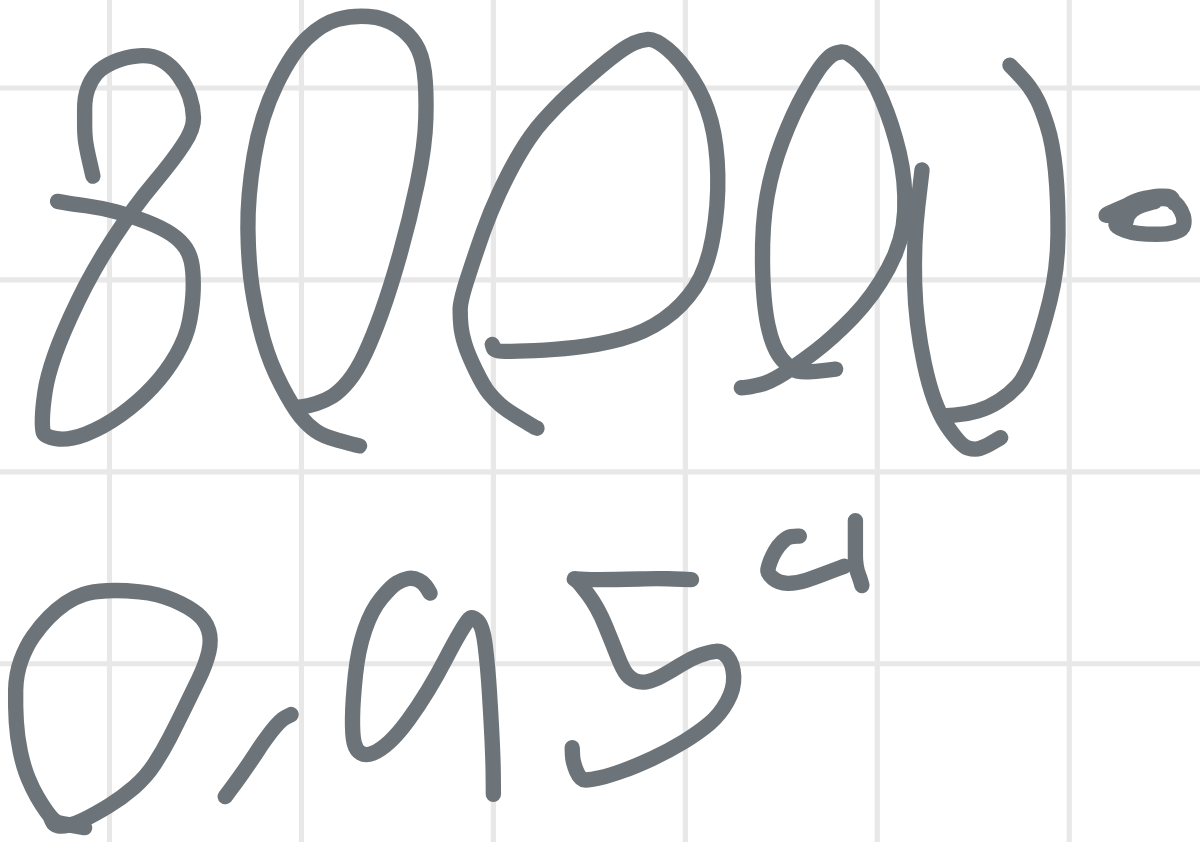 80000·
0,95⁴